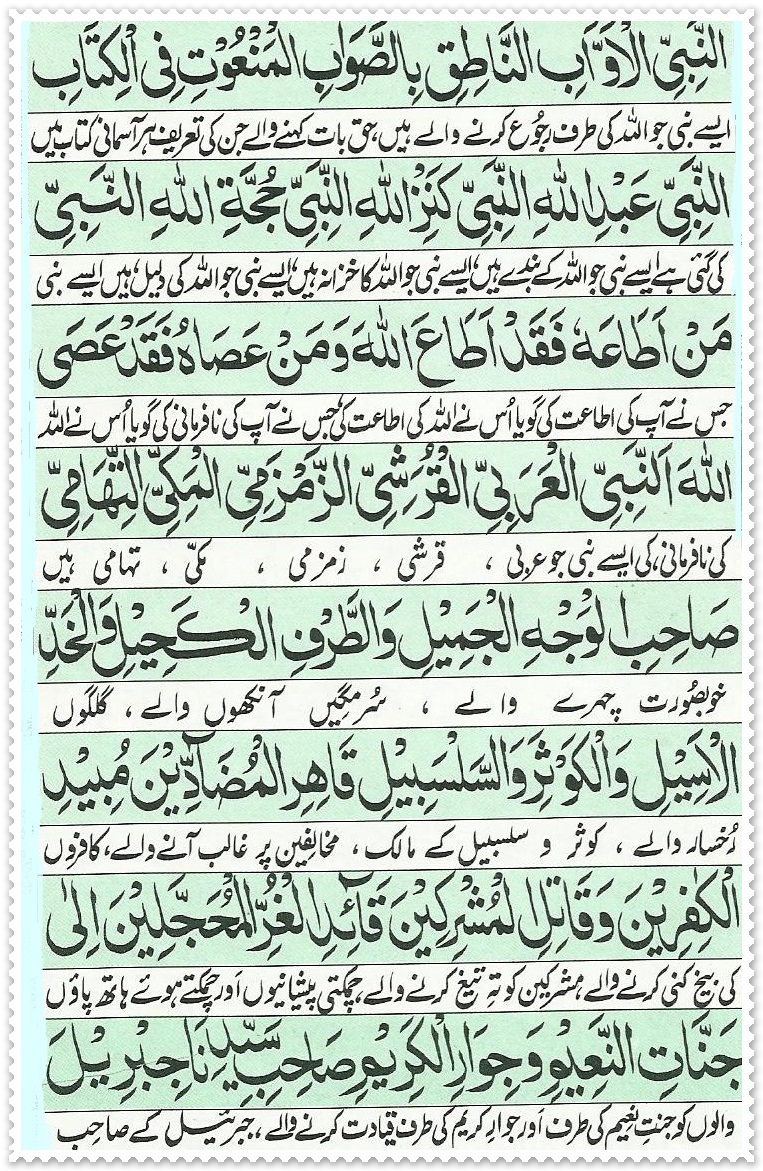 النَّبِيِّ الْاَوَّابِ النَّاطِقِ بِالصَّوَابِ الْمَنْعُوْتِ فِی الْكِتَابِ
ایسے نبی جو اللہ کی طرف رجُوع کرنے والے ہیں، حق بات کہنے والے جن کی تعریف ہر آسمانی کتاب میں
النَّبِيِّ عَبْدِ اللهِ النَّبِيِّ كَنْزِ اللهِ النَّبِيِّ حُجَّةِ اللهِ النَّبِيِّ
کی گئی ہے ایسے نبی جو اللہ کے بندے ہیں، ایسے نبی جو اللہ کا خزانہ ہیں، ایسے نبی جو اللہ کی دلیل ہیں، ایسے نبی
مَنْ اَطَاعَهٗ فَقَدْ اَطَاعَ اللهَ وَمَنْ عَصَاهُ فَقَدْ عَصَی
جس نے آپ کی اطاعت کی گویا اُس نے اللہ کی اطاعت کی، جس نے آپ کی نافرمانی کی گویا اُس نے اللہ
اللهَ اَلنَّبِيِّ الْعَرَبِيِّ الْقُرَشِيِّ الزَّمْزَمِيِّ الْمَكِّيِّ التِّهَامِيِّ
کی نافرمانی کی، ایسے نبی جو عربی ، قرشی ، زمزمی ، مکّی ، تہامی ہیں
صَاحِبِ الْوَجْهِ الْجَمِيْلِ وَالطَّرْفِ الْكَحِيْلِ وَالْخَدِّ
خوبصُورت چہرے والے ، سُرمگیں آنکھوں والے ، گلگوں
الْاَسِيْلِ وَالْكَوْثَرِ وَالسَّلْسَبِيْلِ قَاهِرِ الْمُضَادِّيْنَ مُبِيْدِ
رُخسار والے ، کوثر و سلسبیل کے مالک ، مخالفین پر غالب آنے والے، کافروں
الْكٰفِرِيْنَ وَقَاتِلِ الْمُشْرِكِيْنَ قَائِدِ الْغُرِّ الْمُحَجَّلِيْنَ اِلٰی
کی بیخ کنی کرنے والے، مشرکین کو تہِ تیغ کرنے والے، چمکتی پیشانیوں اور چمکتے ہوئے ہاتھ پاؤں
جَنَّاتِ النَّعِيْمِ وَجِوَارِ الْكَرِيْمِ صَاحِبِ سَيِّدِنَا جِبْرِيْلَ
والوں کو جنتِ نعیم کی طرف اور جوارِ کریم کی طرف قیادت کرنے والے ، جبرئیل کے صاحب